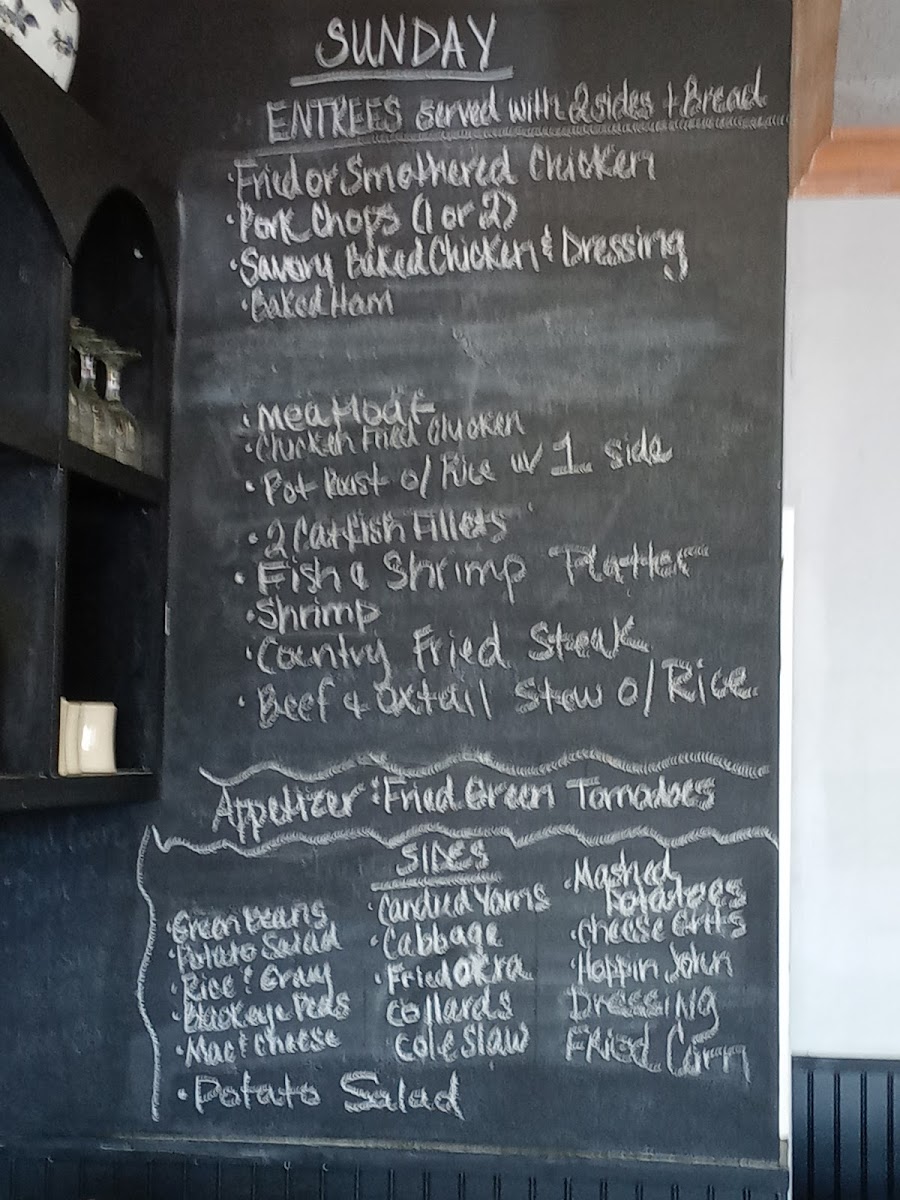 SUNDAY
ENTREES served with 2 sides + Bread
·Fried or Smothered Chicken
·Pork Chops (1 or 2)
·Savory Baked Chicken & Dressing
·Baked Ham
·Meatloaf
·Chicken Fried Chicken
·Pot Roast o/ Rice w/ 1 side
·2 Catfish Fillets
·Fish & Shrimp Platter
·Shrimp
·Country Fried Steak
·Beef & Oxtail Stew o/ Rice
Appetizer: Fried Green Tomatoes
SIDES
·Green Beans
·Potato Salad
·Rice & Gravy
·Blackeye Peas
·Mac & cheese
·Potato Salad
·Candied Yams
·Cabbage
·Fried Okra
Collards
Cole Slaw
·Mashed
Potatoes
·Cheese Grits
·Hoppin John
Dressing
Fried Corn